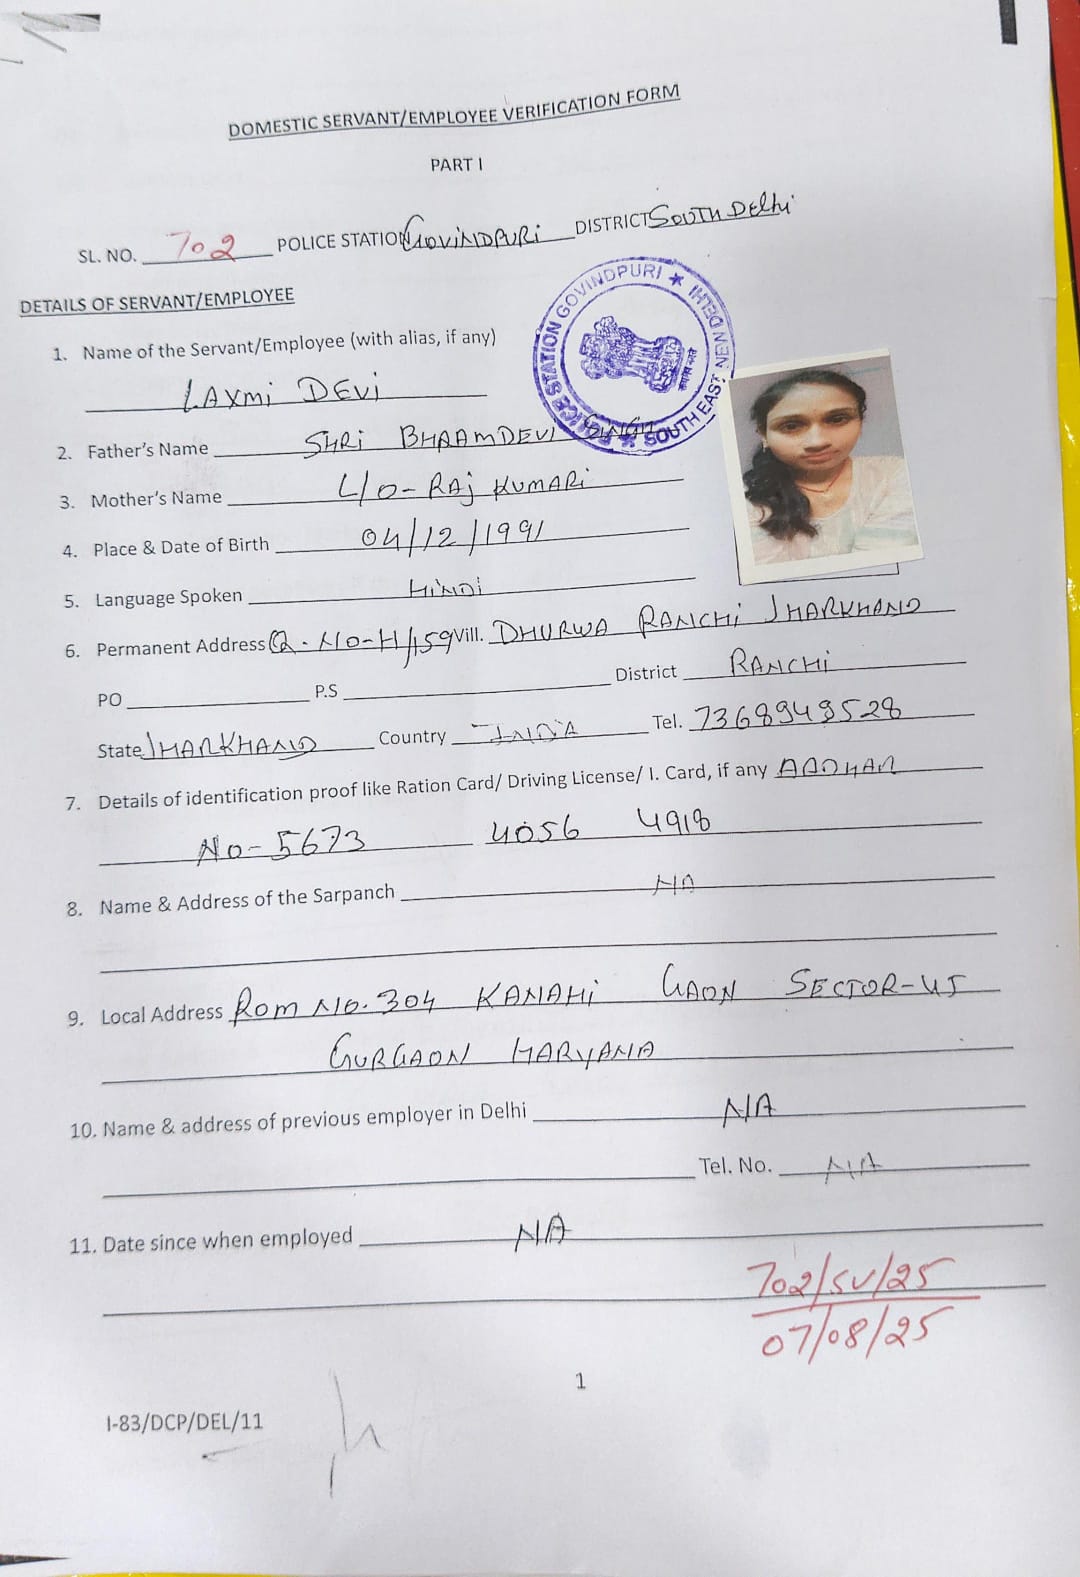 DOMESTIC SERVANT/EMPLOYEE VERIFICATION FORM
PART I
SL. NO. 702 POLICE STATION GOVINDPURI DISTRICT SOUTH DELHI
DETAILS OF SERVANT/EMPLOYEE
POLICE STATION GOVINDPURI ★ SOUTH EAST NEW DELHI ★
सत्यमेव जयते
1. Name of the Servant/Employee (with alias, if any)
LAXMI DEVI
2. Father's Name SHRI BHAAMDEVI SINGH
3. Mother's Name L/O- RAJ KUMARI
4. Place & Date of Birth 04/12/1991
5. Language Spoken HINDI
6. Permanent Address Q. NO-H/159 Vill. DHURWA RANCHI JHARKHAND
PO P.S District RANCHI
State JHARKHAND Country INDIA Tel. 7368949528
7. Details of identification proof like Ration Card/ Driving License/ I. Card, if any AADHAR
No- 5673 4056 4918
8. Name & Address of the Sarpanch NA
9. Local Address Rom NO. 304 KANAHI GAON SECTOR-45
GURGAON HARYANA
10. Name & address of previous employer in Delhi NA
Tel. No. NA
11. Date since when employed NA
702/SV/25
07/08/25
1
I-83/DCP/DEL/11